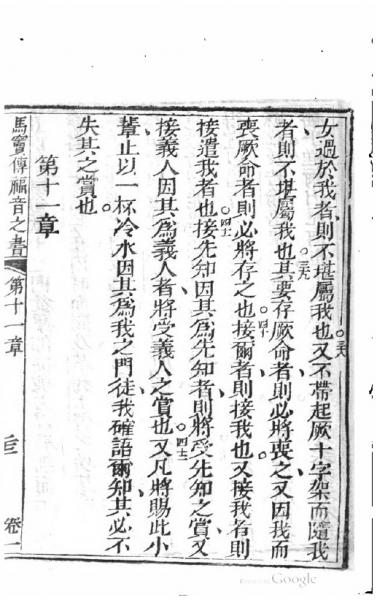 女過於我者則不堪屬我也又不帶起厥十字架而隨我
者則不堪屬我也其要存厥命者則必將喪之又因我而
喪厥命者則必將存之也接爾者則接我也又接我者則
接遣我者也接先知因其為先知者則將受先知之賞又
接義人因其為義人者將受義人之賞也又凡將賜此小
輩止以一杯冷水因其為我之門徒我確語爾知其必不
失其之賞也
第十一章
馬竇傳福音之書 第十一章 卷一
Google